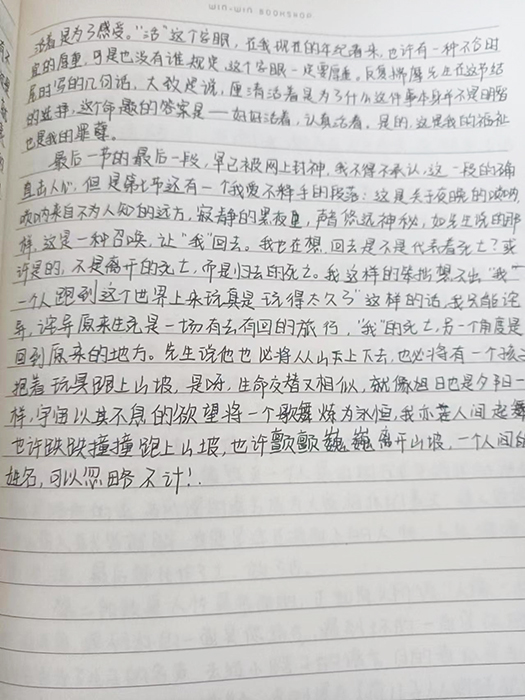 WIN-WIN BOOKSHOP
活着是为了感受。"活"这个字眼，在我现在的年纪看来，也许有一种不合时
宜的厚重，可是也没有谁规定，这个字眼一定要厚重。反复揣摩先生在这节结
尾时写的几句话，大致是说，厘清活着是为了什么这件事本身并不是明智
的选择，这个命题的答案是——好好活着，认真活着。是的，这是我的福祉
也是我的罪孽。
最后一节的最后一段，早已被网上封神，我不得不承认，这一段的确
直击人心，但是第七节还有一个我爱不释手的段落：这是关于夜晚的唢呐
唢呐来自不为人知的远方，寂静的黑夜里，声音悠远神秘，如先生说的那
样，这是一种召唤，让"我"回去。我也在想，回去是不是代表着死亡？或
许是的，不是离开的死亡，而是归去的死亡。我这样的笨拙想不出"我
一个人跑到这个世界上来玩真是玩得太久了"这样的话，我只能诧
异，诧异原来生死是一场有去有回的旅行，"我"的死亡，另一个角度是
回到原来的地方。先生说他也必将从山上下去，也必将有一个孩子
抱着玩具跑上山坡，是呀，生命交替又相似，就像旭日也是夕阳一
样，宇宙以其不息的欲望将一个歌舞炼为永恒，我亦是人间起舞
也许跌跌撞撞跑上山坡，也许颤颤巍巍离开山坡，一个人间的
姓名，可以忽略不计！.